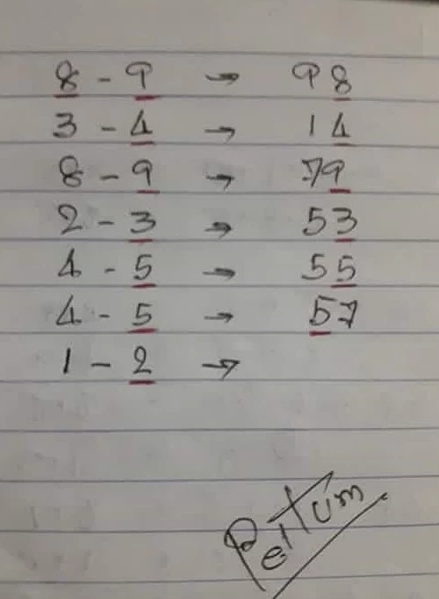 8 - 9 → 98
3 - 4 → 14
8 - 9 → 79
2 - 3 → 53
4 - 5 → 55
4 - 5 → 57
1 - 2 →